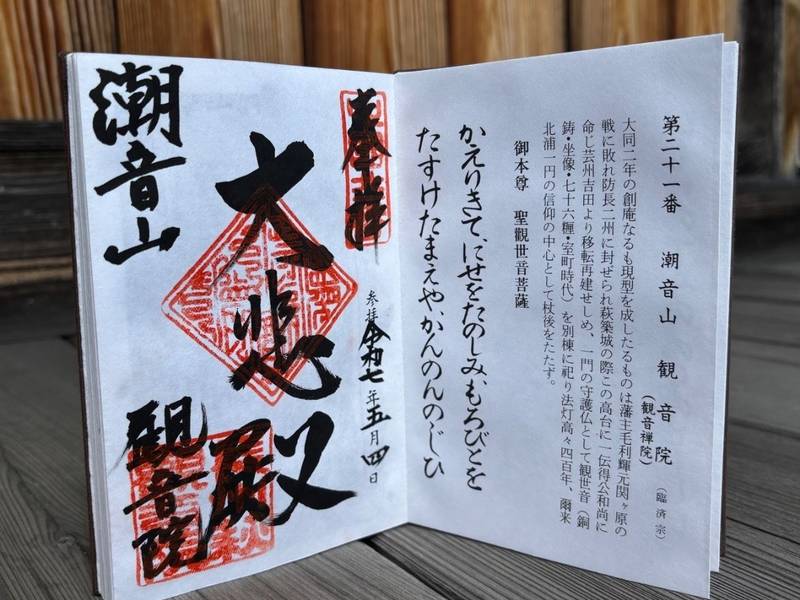 第二十一番　潮音山　観音院
（観音禅院）
（臨済宗）
大同二年の創庵なるも現型を成したるものは藩主毛利輝元関ヶ原の
戦に敗れ防長二州に封ぜられ萩築城の際この高台に一伝得公和尚に
命じ芸州吉田より移転再建せしめ、一門の守護仏として観世音（銅
鋳・坐像・七十六糎・室町時代）を別棟に祀り法灯高々四百年、爾来
北浦一円の信仰の中心として杖後をたたず。
御本尊　聖觀世音菩薩
かえりきて、にせをたのしみ、もろびとを
たすけたまえや、かんのんのじひ
奉拝
参拝 令和七年五月四日
大悲殿
潮音山
観音院